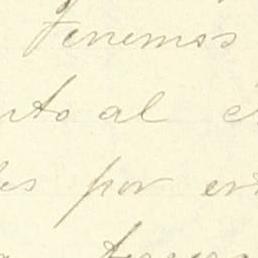 Tenemos
nto al e
es por en